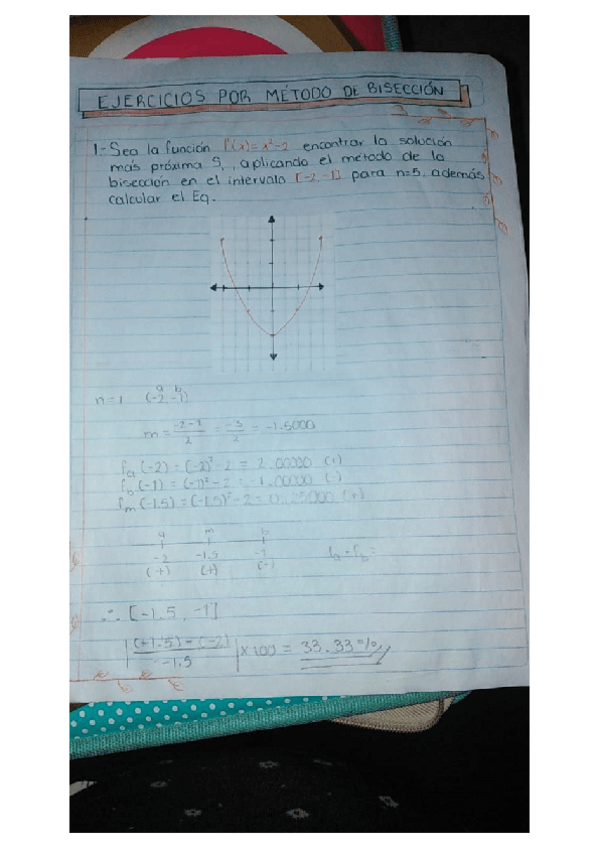 EJERCICIOS POR MÉTODO DE BISECCIÓN
1.- Sea la función f(x)=x²-2 encontrar la solución
más próxima S, aplicando el método de la
bisección en el intervalo [-2,-1] para n=5, además
calcular el Eq.
a b
n=1 (-2 -1)
m = -2-1/2 = -3/2 = -1.5000
fa (-2) = (-2)² - 2 = 2.00000 (+)
fb (-1) = (-1)² - 2 = -1.00000 (-)
fm (-1.5) = (-1.5)² - 2 = 0.25000 (+)
a m b
-2 -1.5 -1
(+) (+) (-)
fa * fb =
∴ [-1.5, -1]
|(+1.5) - (-2)/-1.5| x 100 = 33.33%